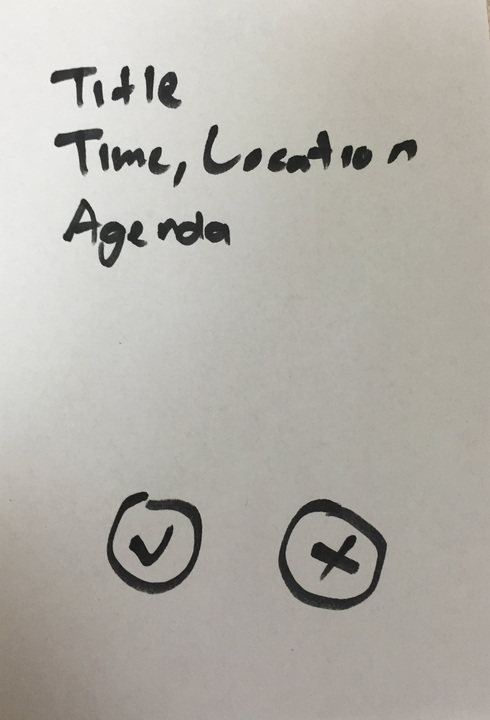 Title
Time, Location
Agenda